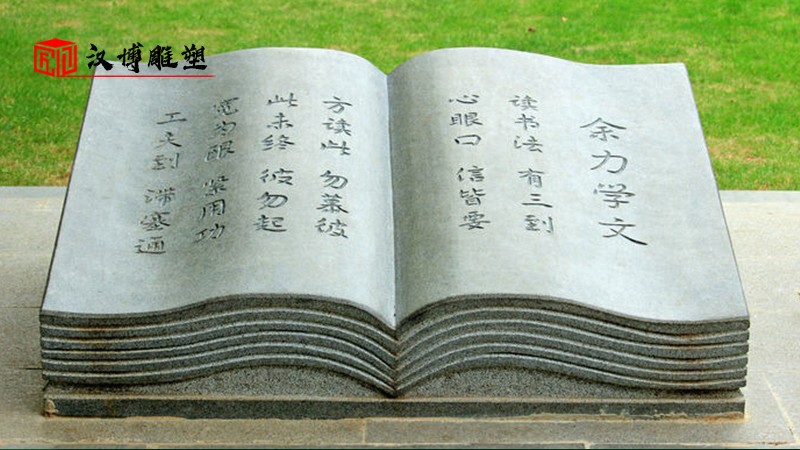 汉博雕塑
余力学文
读书法 有三到
心眼口 信皆要
方读此 勿慕彼
此未终 彼勿起
宽为限 紧用功
工夫到 滞塞通